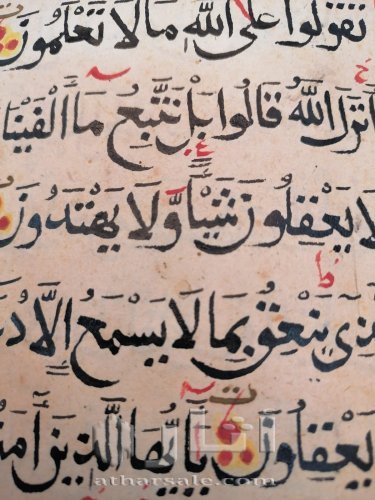 تَقُولُوا عَلَى اللّٰهِ مَا لَا تَعْلَمُونَ
اَنْزَلَ اللّٰهُ قَالُوا بَلْ نَتَّبِعُ مَا اَلْفَيْنَا
لَا يَعْقِلُونَ شَيْـًٔا وَّلَا يَهْتَدُونَ
يَنْعِقُ بِمَا لَا يَسْمَعُ اِلَّا
يَعْقِلُونَ يَا اَيُّهَا الَّذِينَ
atharsale.com